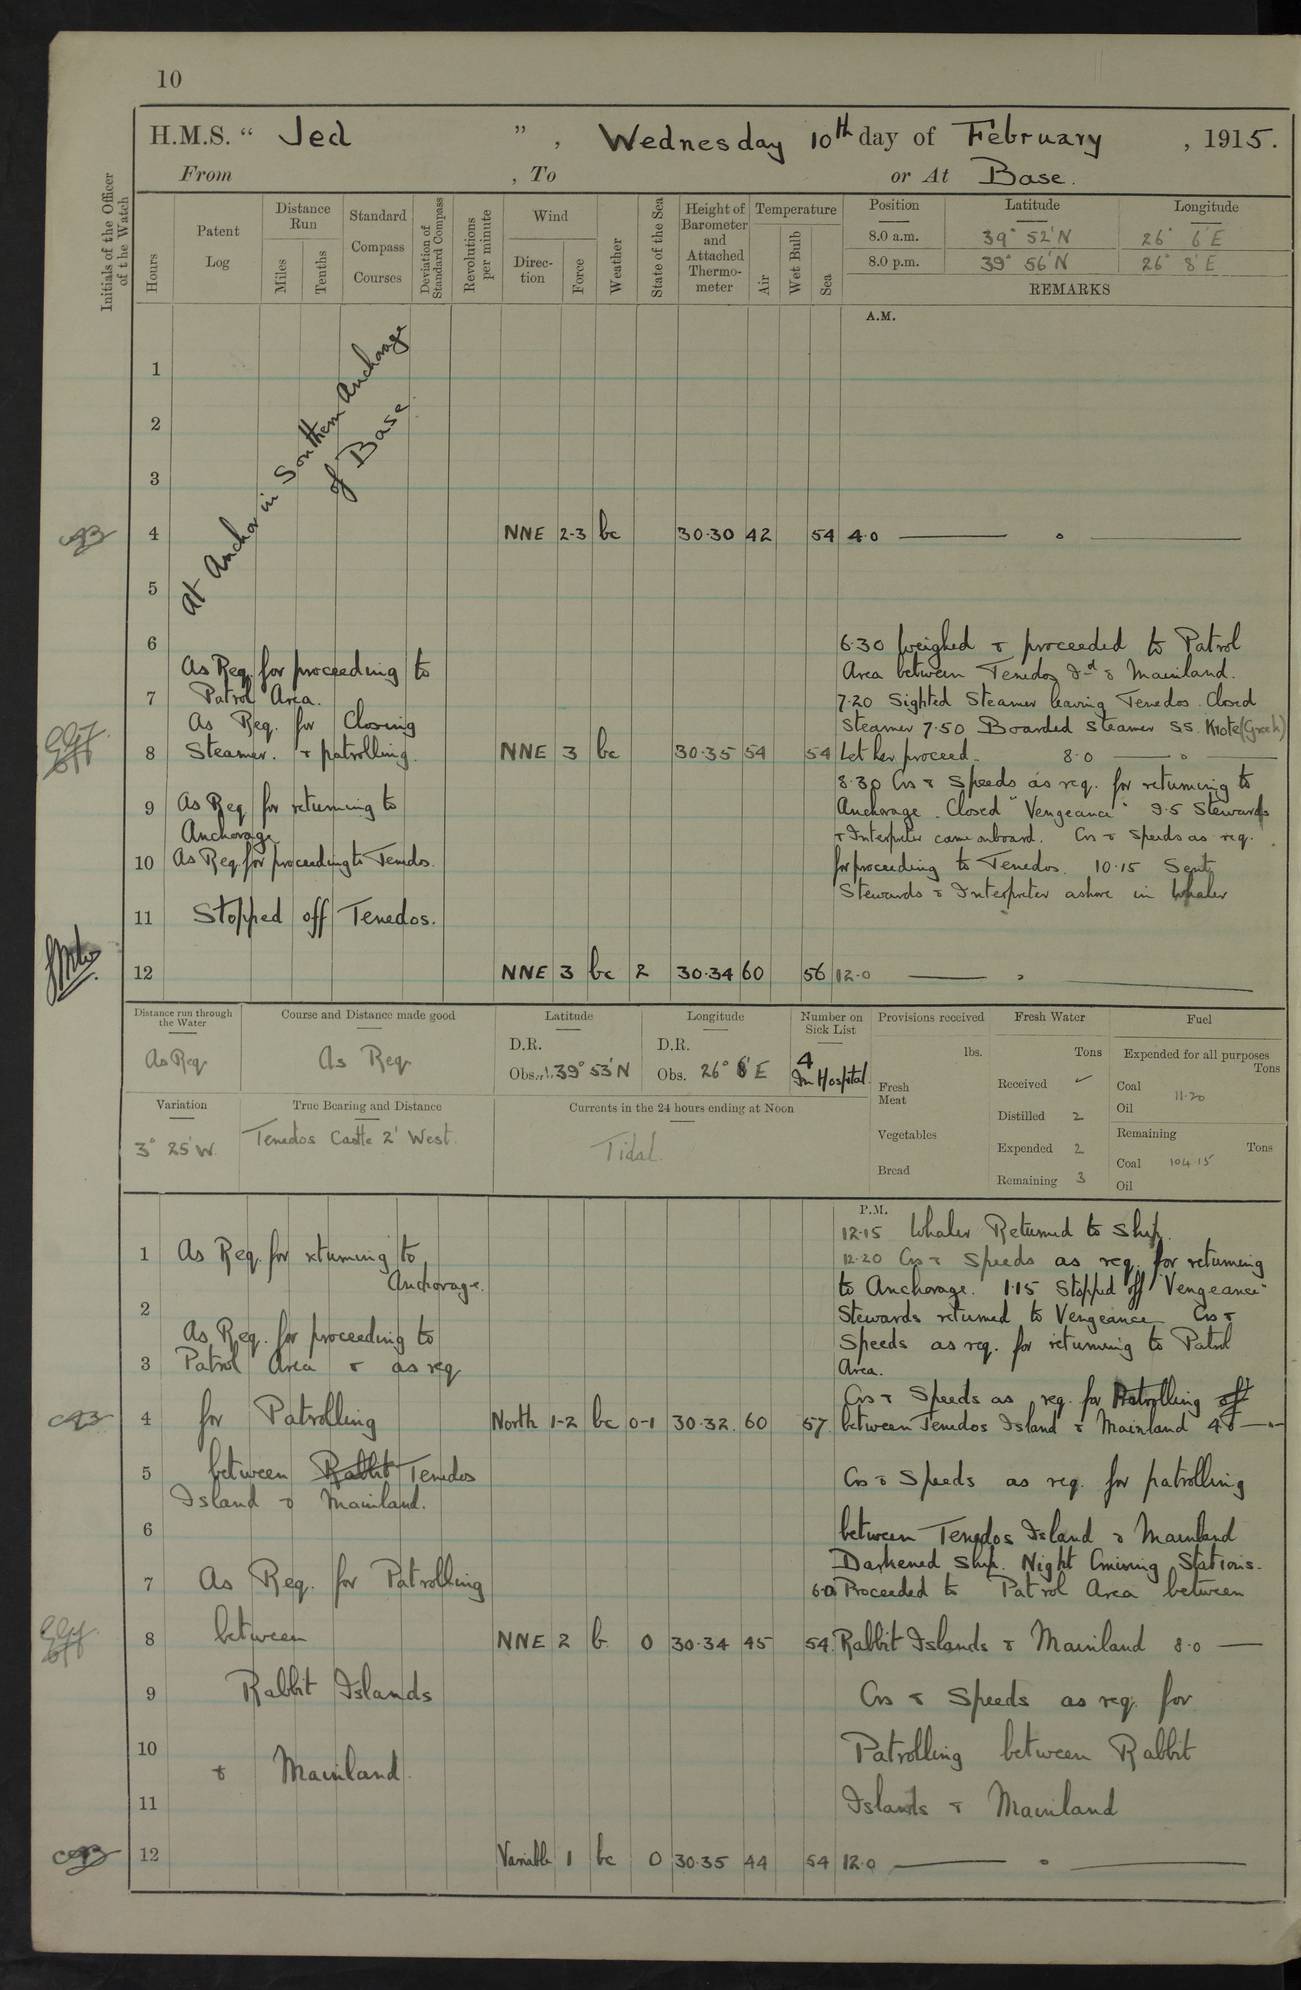 10
H.M.S. “ Jed ” , Wednesday 10th day of February , 1915.
From , To or At Base.
Initials of the Officer of the Watch
Hours
Patent Log
Distance Run
Miles
Tenths
Standard Compass Courses
Deviation of Standard Compass
Revolutions per minute
Wind
Direction
Force
Weather
State of the Sea
Height of Barometer and Attached Thermometer
Temperature
Air
Wet Bulb
Sea
Position Latitude Longitude
8.0 a.m. 39° 52' N 26° 6' E
8.0 p.m. 39° 56' N 26° 8' E
REMARKS
A.M.
At Anchor in Southern Anchorage
of Base.
1
2
3
4 NNE 2-3 bc 30·30 42 54 4·0
5
6 6·30 Weighed & proceeded to Patrol
As Req. for proceeding to Area between Tenedos Isd & Mainland.
7 Patrol Area. 7·20 Sighted Steamer leaving Tenedos. Closed
As Req. for Closing Steamer 7·50 Boarded Steamer SS. Krote (Greek)
8 Steamer. & patrolling. NNE 3 bc 30·35 54 54 Let her proceed. 8·0
8·30 Cos & Speeds as req. for returning to
9 As Req for returning to Anchorage. Closed "Vengeance" 9·5 Stewards
Anchorage & Interpreter came onboard. Cos & Speeds as req.
10 As Req. for proceeding to Tenedos. for proceeding to Tenedos. 10·15 Sent
Stewards & Interpreter ashore in Whaler
11 Stopped off Tenedos.
12 NNE 3 bc 2 30·34 60 56 12·0
Distance run through the Water
As Req
Course and Distance made good
As Req
Latitude
D.R.
Obs. 39° 53' N
Longitude
D.R.
Obs. 26° 6' E
Number on Sick List
4
In Hospital.
Provisions received
lbs.
Fresh Meat
Vegetables
Bread
Fresh Water
Tons
Received ✓
Distilled 2
Expended 2
Remaining 3
Fuel
Expended for all purposes
Tons
Coal 11·20
Oil
Remaining
Tons
Coal 104·15
Oil
Variation
3° 25' W.
True Bearing and Distance
Tenedos Castle 2' West.
Currents in the 24 hours ending at Noon
Tidal.
P.M.
12·15 Whaler Returned to Ship.
1 As Req. for returning to 12·20 Cos & Speeds as req. for returning
Anchorage. to Anchorage. 1·15 Stopped off "Vengeance"
2 Stewards returned to Vengeance Cos &
As Req. for proceeding to Speeds as req. for returning to Patrol
3 Patrol Area & as req Area.
Cos & Speeds as req. for Patrolling off
4 for Patrolling North 1-2 bc 0-1 30·32. 60 57. between Tenedos Island & Mainland 4·0
5 between Rabbit Tenedos Cos & Speeds as req. for patrolling
Island & Mainland.
6 between Tenedos Island & Mainland
Darkened Ship. Night Cruising Stations.
7 As Req. for Patrolling 6·0 Proceeded to Patrol Area between
8 between NNE 2 b. 0 30·34 45 54. Rabbit Islands & Mainland 8·0
9 Rabbit Islands Cos & Speeds as req. for
10 Patrolling between Rabbit
& Mainland.
11 Islands & Mainland
12 Variable 1 bc 0 30·35 44 54 12·0